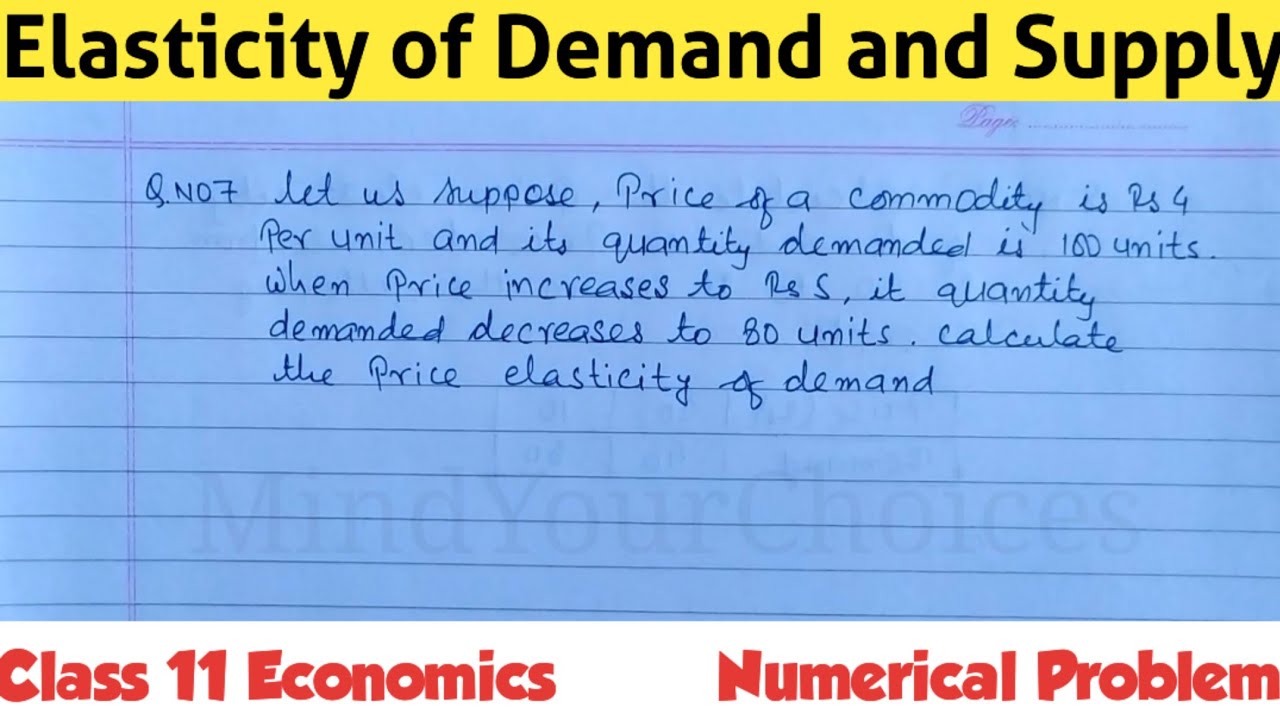 Elasticity of Demand and Supply
Page:
Q.NO7 let us suppose, Price of a commodity is Rs 4
Per unit and its quantity demanded is 100 units.
when Price increases to Rs 5, it quantity
demanded decreases to 80 units. calculate
the Price elasticity of demand
MindYourChoices
Class 11 Economics
Numerical Problem